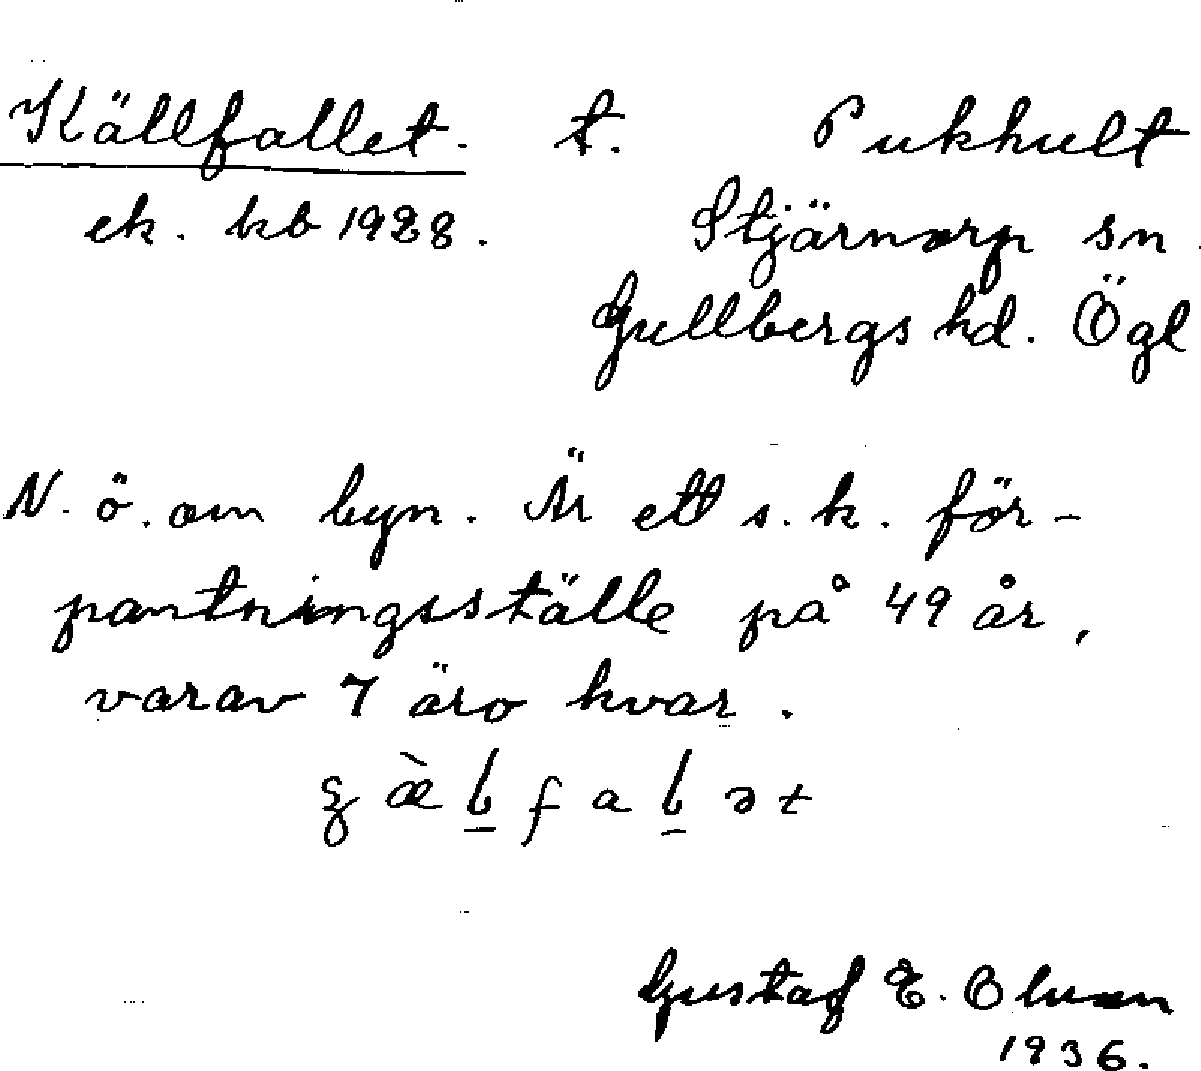 Källfallet. t. Pukhult
ek. kb 1928. Stjärnorp sn
Gullbergs hd. Ögl
N. ö. om byn. Är ett s. k. för-
pantningsställe på 49 år,
varav 7 äro kvar.
Gustaf E. Olsson
1936.